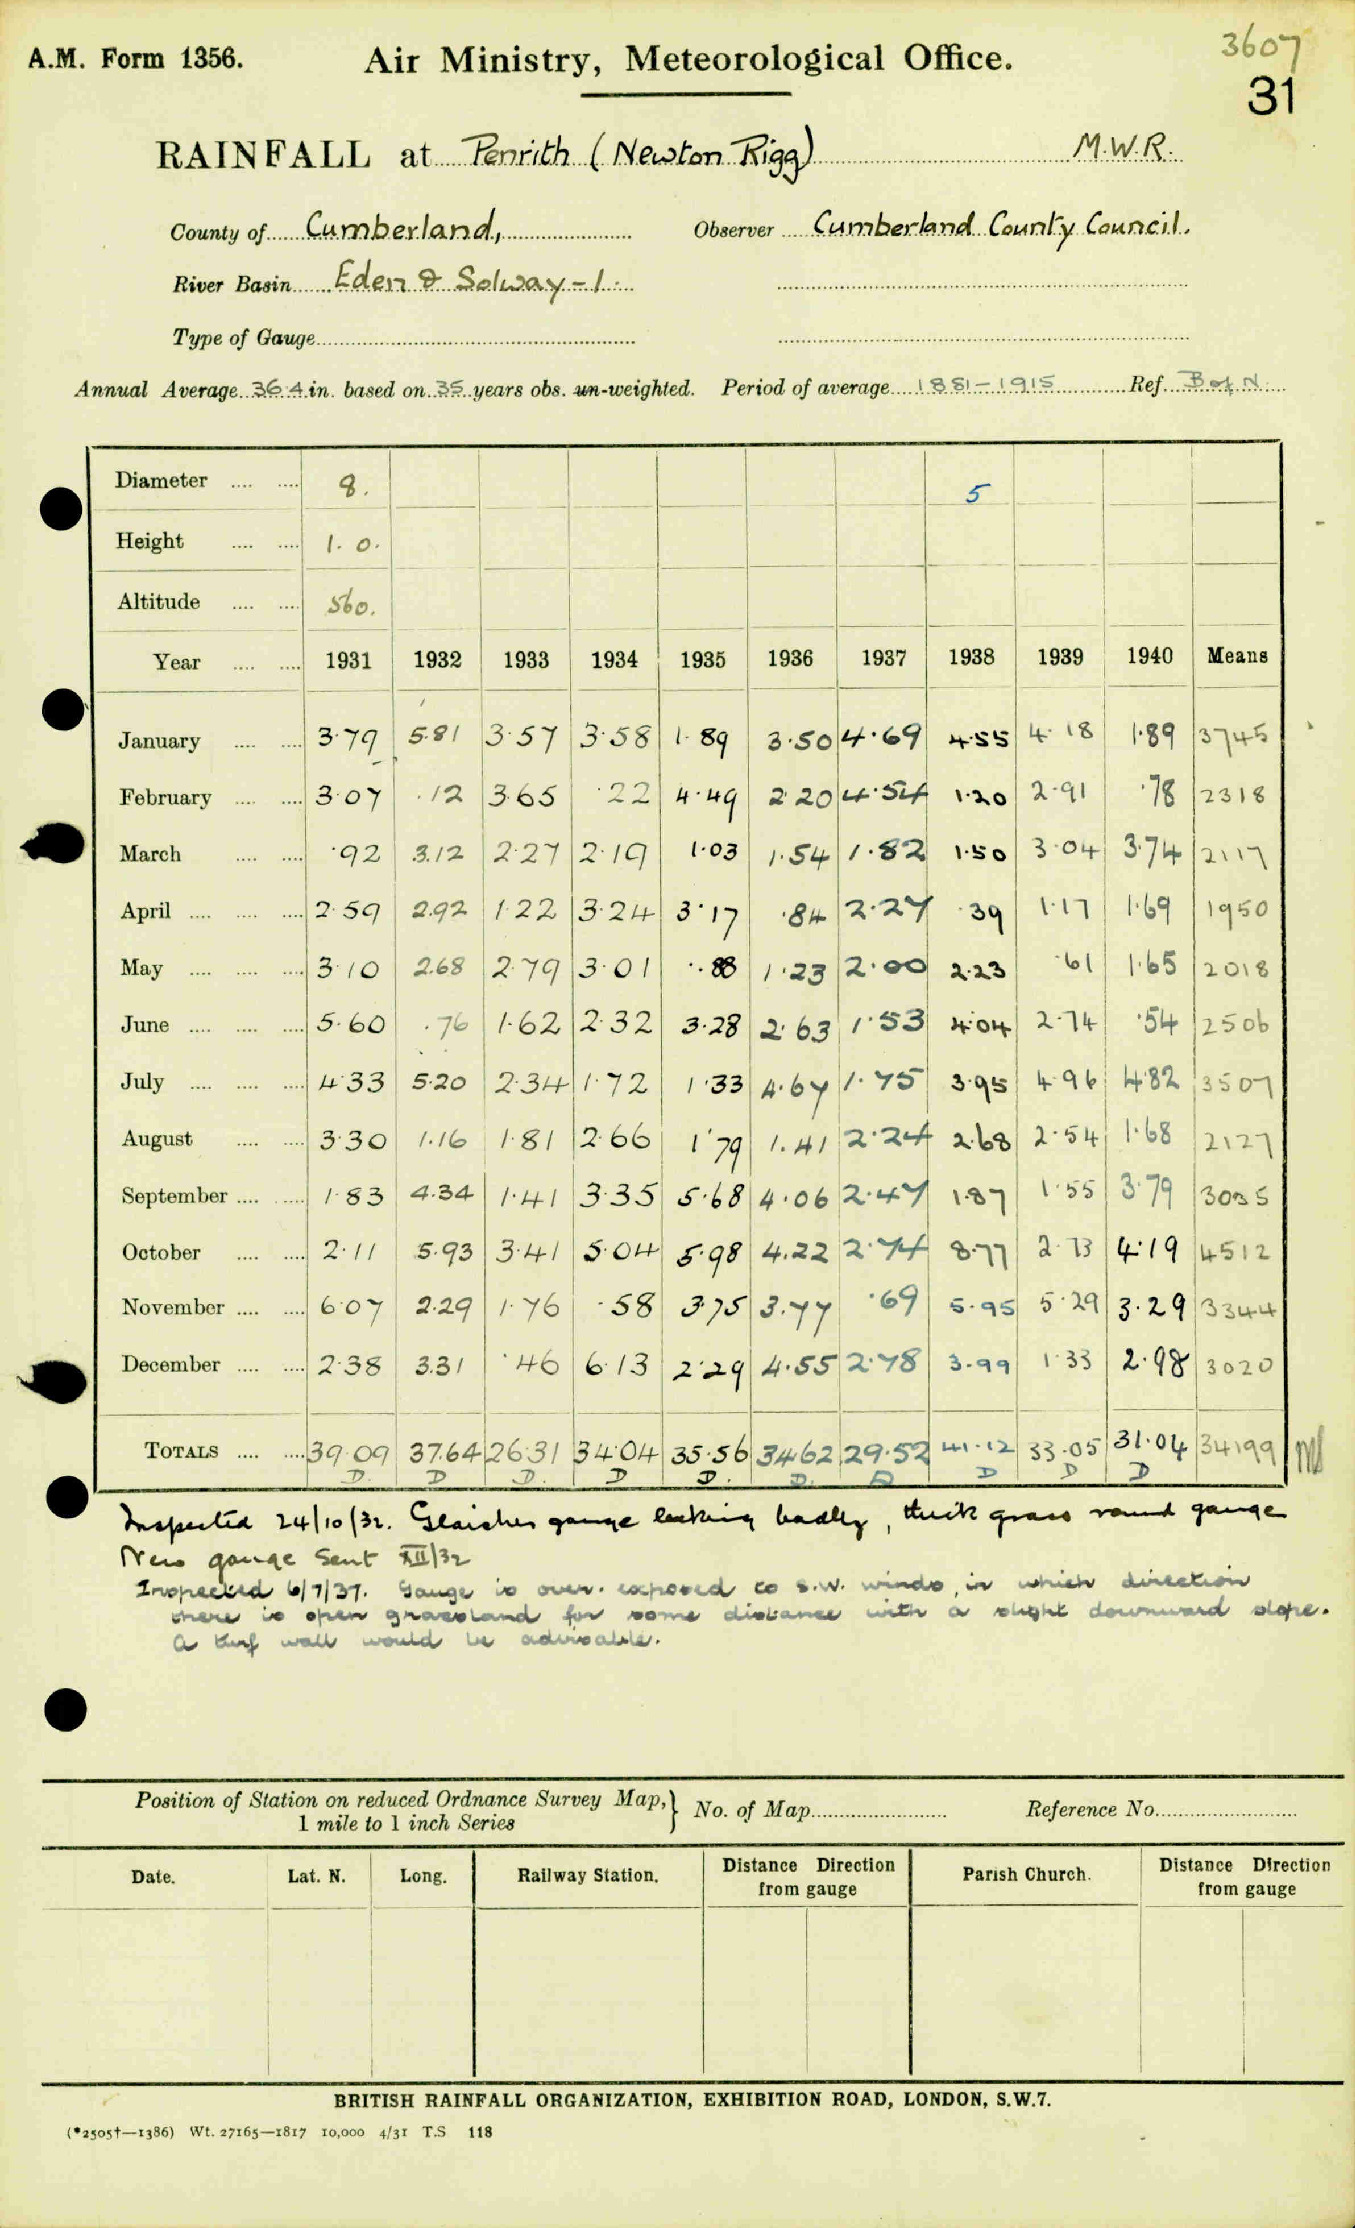 3607
A.M. Form 1356. Air Ministry, Meteorological Office.
31
RAINFALL at Penrith (Newton Rigg) M.W.R.
County of Cumberland, Observer Cumberland County Council.
River Basin Eden & Solway-1.
Type of Gauge
Annual Average 36.4 in. based on 35 years obs. un-weighted. Period of average 1881-1915 Ref. B of N.
Diameter 8. 5
Height 1. 0.
Altitude 560.
Year 1931 1932 1933 1934 1935 1936 1937 1938 1939 1940 Means
January 3.79 5.81 3.57 3.58 1.89 3.50 4.69 4.55 4.18 1.89 3745
February 3.07 .12 3.65 .22 4.49 2.20 4.54 1.20 2.91 .78 2318
March .92 3.12 2.27 2.19 1.03 1.54 1.82 1.50 3.04 3.74 2117
April 2.59 2.92 1.22 3.24 3.17 .84 2.27 .39 1.17 1.69 1950
May 3.10 2.68 2.79 3.01 .88 1.23 2.00 2.23 .61 1.65 2018
June 5.60 .76 1.62 2.32 3.28 2.63 1.53 4.04 2.74 .54 2506
July 4.33 5.20 2.34 1.72 1.33 4.67 1.75 3.95 4.96 4.82 3507
August 3.30 1.16 1.81 2.66 1.79 1.41 2.24 2.68 2.54 1.68 2127
September 1.83 4.34 1.41 3.35 5.68 4.06 2.47 1.87 1.55 3.79 3035
October 2.11 5.93 3.41 5.04 5.98 4.22 2.74 8.77 2.73 4.19 4512
November 6.07 2.29 1.76 .58 3.75 3.77 .69 5.95 5.29 3.29 3344
December 2.38 3.31 .46 6.13 2.29 4.55 2.78 3.99 1.33 2.98 3020
TOTALS 39.09 37.64 26.31 34.04 35.56 34.62 29.52 41.12 33.05 31.04 34199
D. D D. D D. D. D D D D
Inspected 24/10/32. Glaisher gauge leaking badly, thick grass round gauge
New gauge sent XII/32
Inspected 6/7/37. Gauge is over-exposed to S.W. winds, in which direction
there is open grassland for some distance with a slight downward slope.
A turf wall would be advisable.
Position of Station on reduced Ordnance Survey Map, 1 mile to 1 inch Series } No. of Map Reference No.
Date. Lat. N. Long. Railway Station. Distance Direction from gauge Parish Church. Distance Direction from gauge
BRITISH RAINFALL ORGANIZATION, EXHIBITION ROAD, LONDON, S.W.7.
(*2505†—1386) Wt. 27165—1817 10,000 4/31 T.S 118